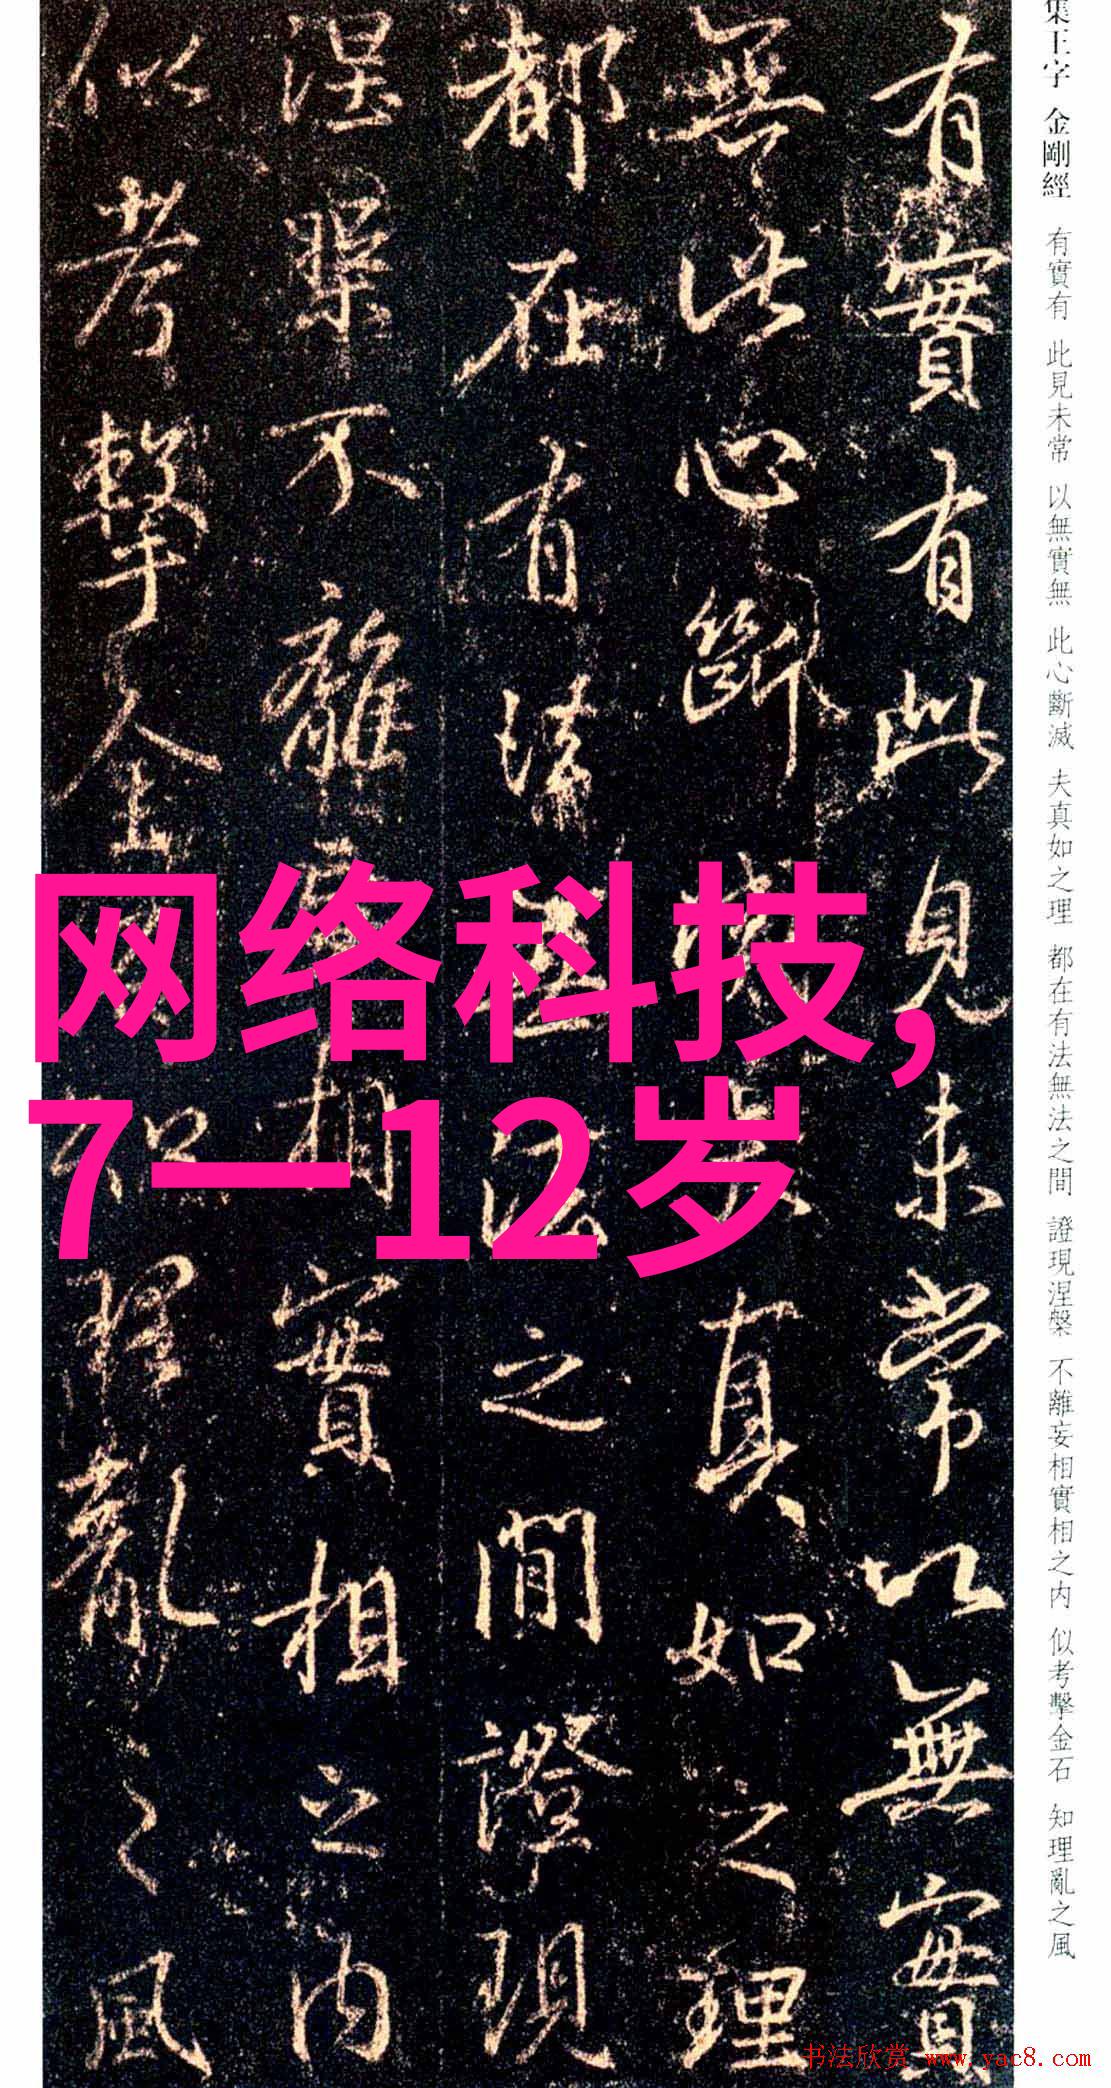 集王字 金剛經 有實有 此見未常 以無實無 此心斷滅 夫真如之理 都在有法無法之間 證現涅槃 不離妄相實相之内 似考擊金石 知理亂之風
有實有此見未常以無實
無此心斷滅夫真如之理
都在有法無法之間證現
涅槃不離妄相實相之内
似考擊金石知理亂之風
网络科技,
7—12岁
书法欣赏 www.yac8.com